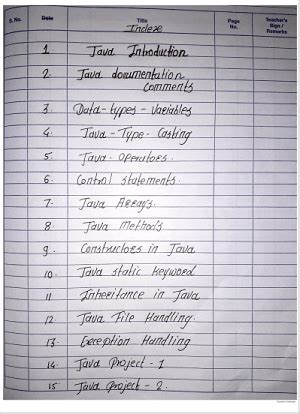 S. No. Date Title Page No. Teacher's Sign / Remarks
Index
1. Java Introduction
2. Java documentation
comments
3. Data-types-Variables
4. Java-Type-Casting
5. Java-Operators.
6. Control statements.
7. Java Arrays.
8. Java Methods
9. Constructors in Java
10. Java static keyword
11 Inheritance in Java
12. Java File Handling.
13. Exception Handling
14. Java Project-1
15. Java Project-2.